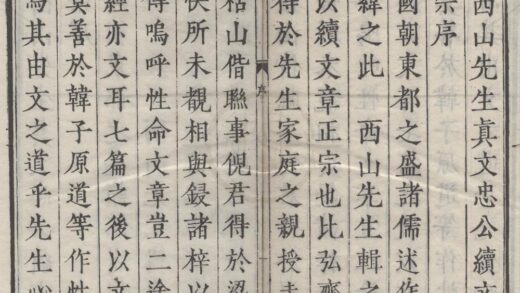 西山先生眞文忠公續文
宗序
國朝東都之盛諸儒述作
緯之此 西山先生輯之
以續文章正宗也比弘齋
得於先生家庭之親授
序
栝山偕聯事倪君得於梁
快所未覩相與鋟諸梓以
得嗚呼性命文章豈二途
經亦文耳七篇之後以文
莫善於韓子原道等作性
爲其由文之道乎先生心